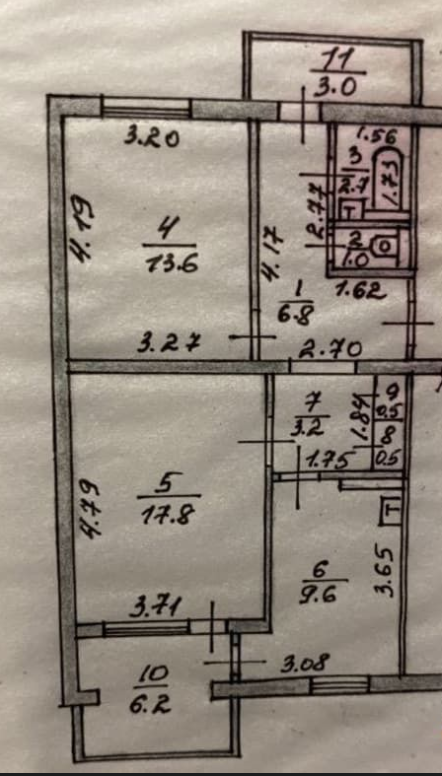 11
3.0
3.20
1.56
3
2.7
1.73
4.19
4
13.6
4.17
2.77
T
2
1.0
1
6.8
1.62
3.27
2.70
7
3.2
1.84
9
0.5
8
0.5
1.75
4.79
5
17.8
T
6
9.6
3.65
3.71
3.08
10
6.2